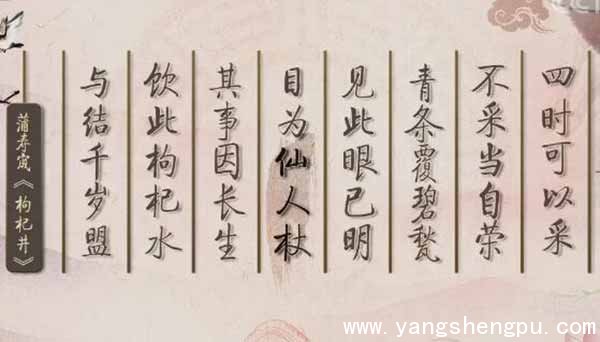 四时可以采
不采当自荣
青条覆碧甃
见此眼已明
目为仙人杖
其事因长生
饮此枸杞水
与结千岁盟
蒲寿宬《枸杞井》
www.yangshengpu.com